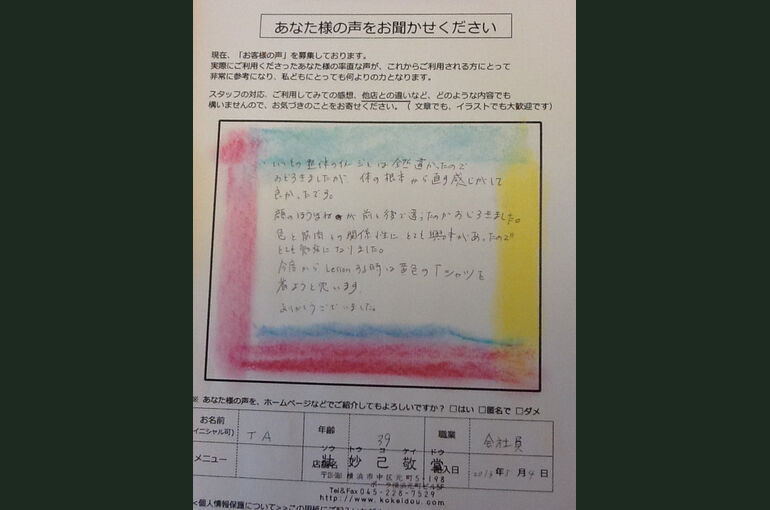 あなた様の声をお聞かせください
現在、「お客様の声」を募集しております。
実際にご利用くださったあなた様の率直な声が、これからご利用される方にとって
非常に参考になり、私どもにとっても何よりの力となります。
スタッフの対応、ご利用してみての感想、他店との違いなど、どのような内容でも
構いませんので、お気づきのことをお寄せください。（文章でも、イラストでも大歓迎です）
いつもの整体のイメージとは全然違かったので
おどろきましたが 体の根本から直す感じがして
良かったです。
顔のほうほねが前と後で違ったのがおどろきました。
色と筋肉との関係性にとても興味があったので
とても勉強になりました。
今度からLessonする時は黄色のTシャツを
着ようと思います
ありがとうございました。
※ あなた様の声を、ホームページなどでご紹介してもよろしいですか？ □はい □匿名で □ダメ
お名前
(イニシャル可)
T A
年齢
39
職業
会社員
メニュー
店舗名
ソウ トウ コ ケイ ドウ
妙己敬堂
横浜市中区元町5-198
Tel&Fax045-228-7529
http://www.kokeidou.com
記入日
2013年5月4日
<個人情報保護について>